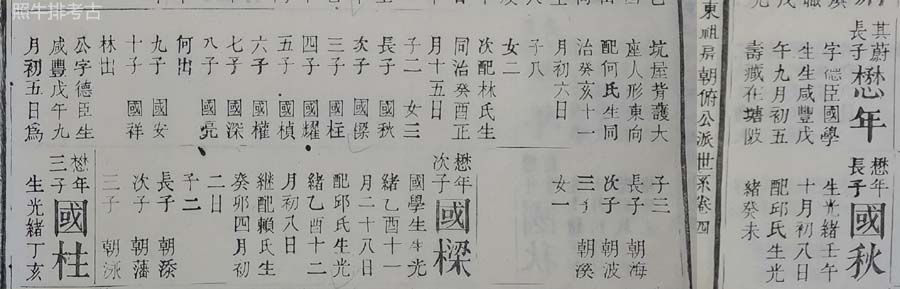 照牛排考古
其蔚
長子
懋年
字德臣國學
生生咸豐戊
午九月初五
壽藏在塘陂
懋年
長子
國秋
生光緒壬午
十月初八日
配邱氏生光
緒癸未
東祖昇朝俯公派世系卷四
坑屋背護大
座人形東向
配何氏生同
治癸亥十一
月初六日
子八
女二
次配林氏生
同治癸酉正
月十五日
子二 女三
長子 國秋
次子 國樑
三子 國柱
四子 國耀
五子 國楨
六子 國權
七子 國深
八子 國亮
何出
九子 國安
十子 國祥
林出
公字德臣生
咸豐戊午九
月初五日爲
子三
長子 朝海
次子 朝波
三子 朝溪
女一
懋年
次子
國樑
國學生生光
緒乙酉十一
月二十八日
配邱氏生光
緒乙酉十二
月初八日
繼配賴氏生
癸卯四月初
二日
子二
長子 朝
次子 朝藩
三子 朝泳
懋年
三子
國柱
生光緒丁亥